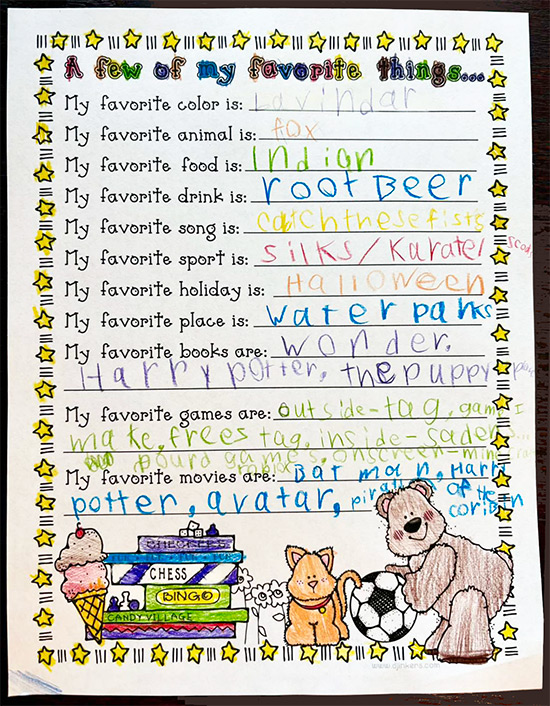 A few of my favorite things...
My favorite color is: Lavindar
My favorite animal is: fox
My favorite food is: Indian
My favorite drink is: root Beer
My favorite song is: catchthesefists
My favorite sport is: silks/Karate/
My favorite holiday is: Halloween
My favorite place is: water parks
My favorite books are: wonder,
Harry potter, the puppy
My favorite games are: outside-tag, game I
make, frees tag, inside-
bourd games, onscreen-
roblox
My favorite movies are: Bat man, Harry
potter, avatar, pirates of the
coribin
CHECKERS
CHESS
BINGO
CANDY VILLAGE
www.djinkers.com